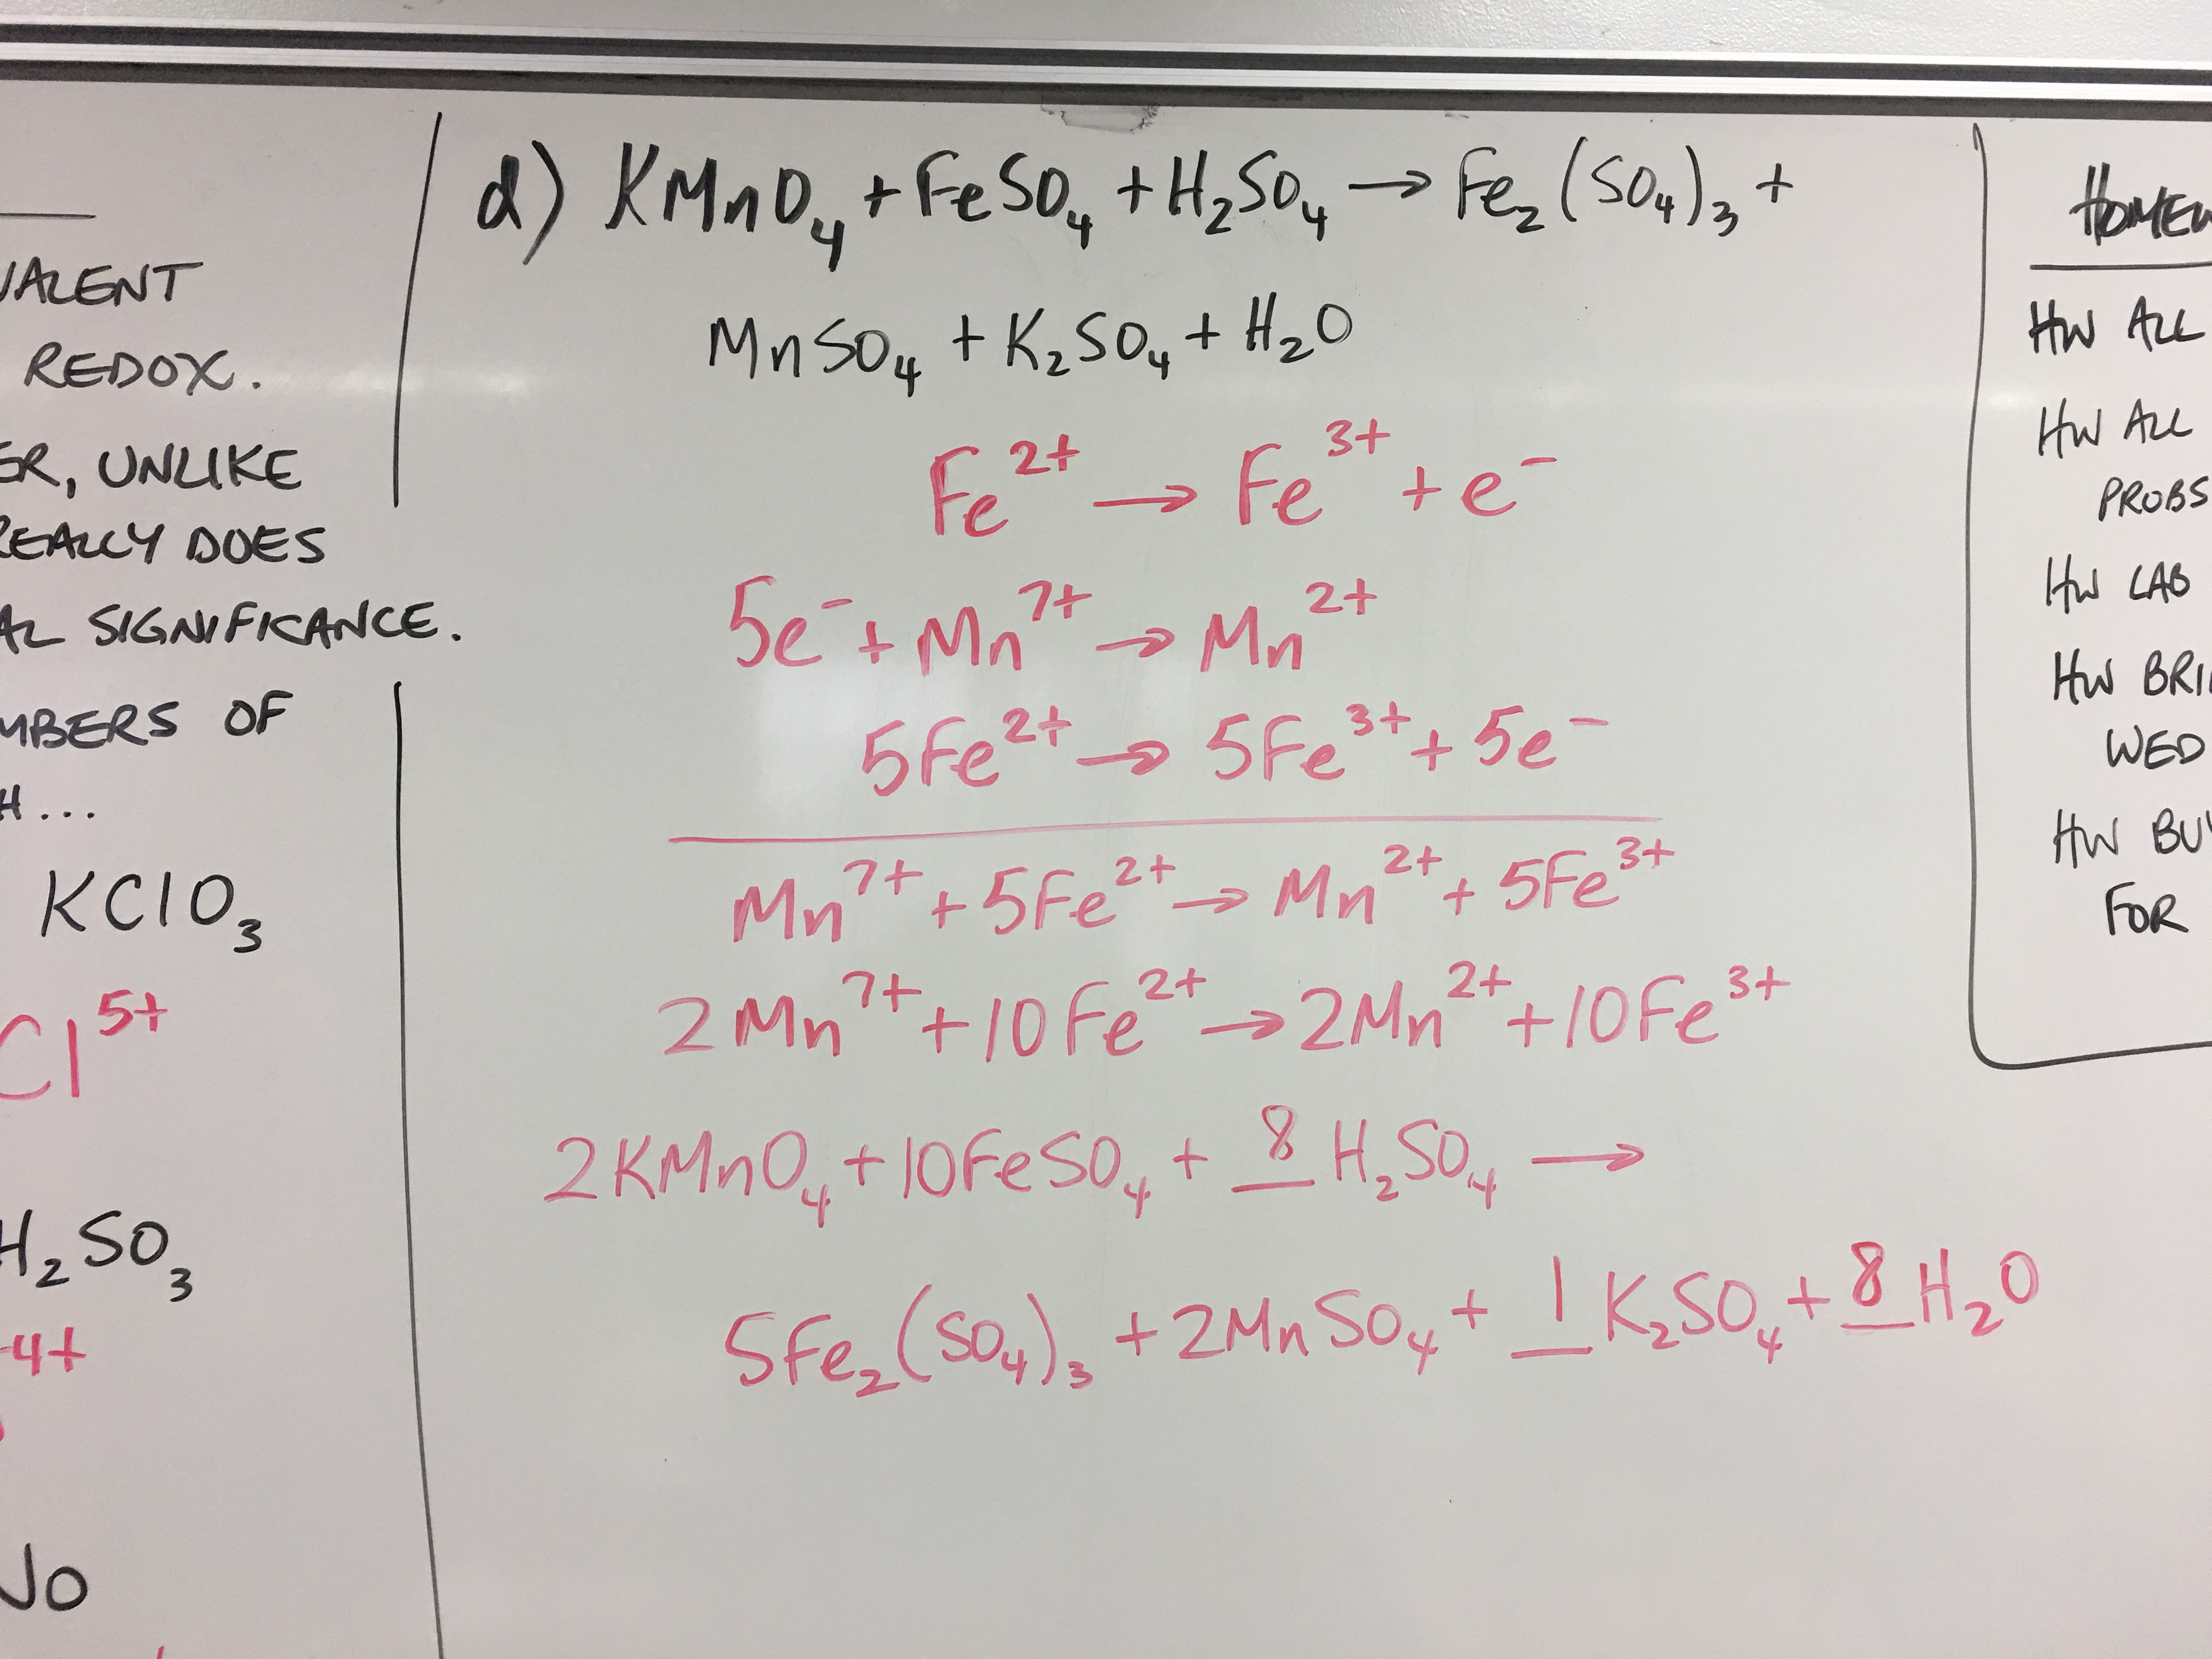 VALENT
REDOX.
ER, UNLIKE
REALLY DOES
AL SIGNIFICANCE.
MBERS OF
H...
KClO₃
Cl⁵⁺
H₂SO₃
4+
No
d) KMnO₄ + FeSO₄ + H₂SO₄ → Fe₂(SO₄)₃ +
MnSO₄ + K₂SO₄ + H₂O
Fe²⁺ → Fe³⁺ + e⁻
5e⁻ + Mn⁷⁺ → Mn²⁺
5Fe²⁺ → 5Fe³⁺ + 5e⁻
Mn⁷⁺ + 5Fe²⁺ → Mn²⁺ + 5Fe³⁺
2Mn⁷⁺ + 10Fe²⁺ → 2Mn²⁺ + 10Fe³⁺
2KMnO₄ + 10FeSO₄ + 8 H₂SO₄ →
5Fe₂(SO₄)₃ + 2MnSO₄ + 1 K₂SO₄ + 8 H₂O
HOMEW
HW ALL
HW ALL
PROBS
HW LAB
HW BRI
WED
HW BUY
FOR